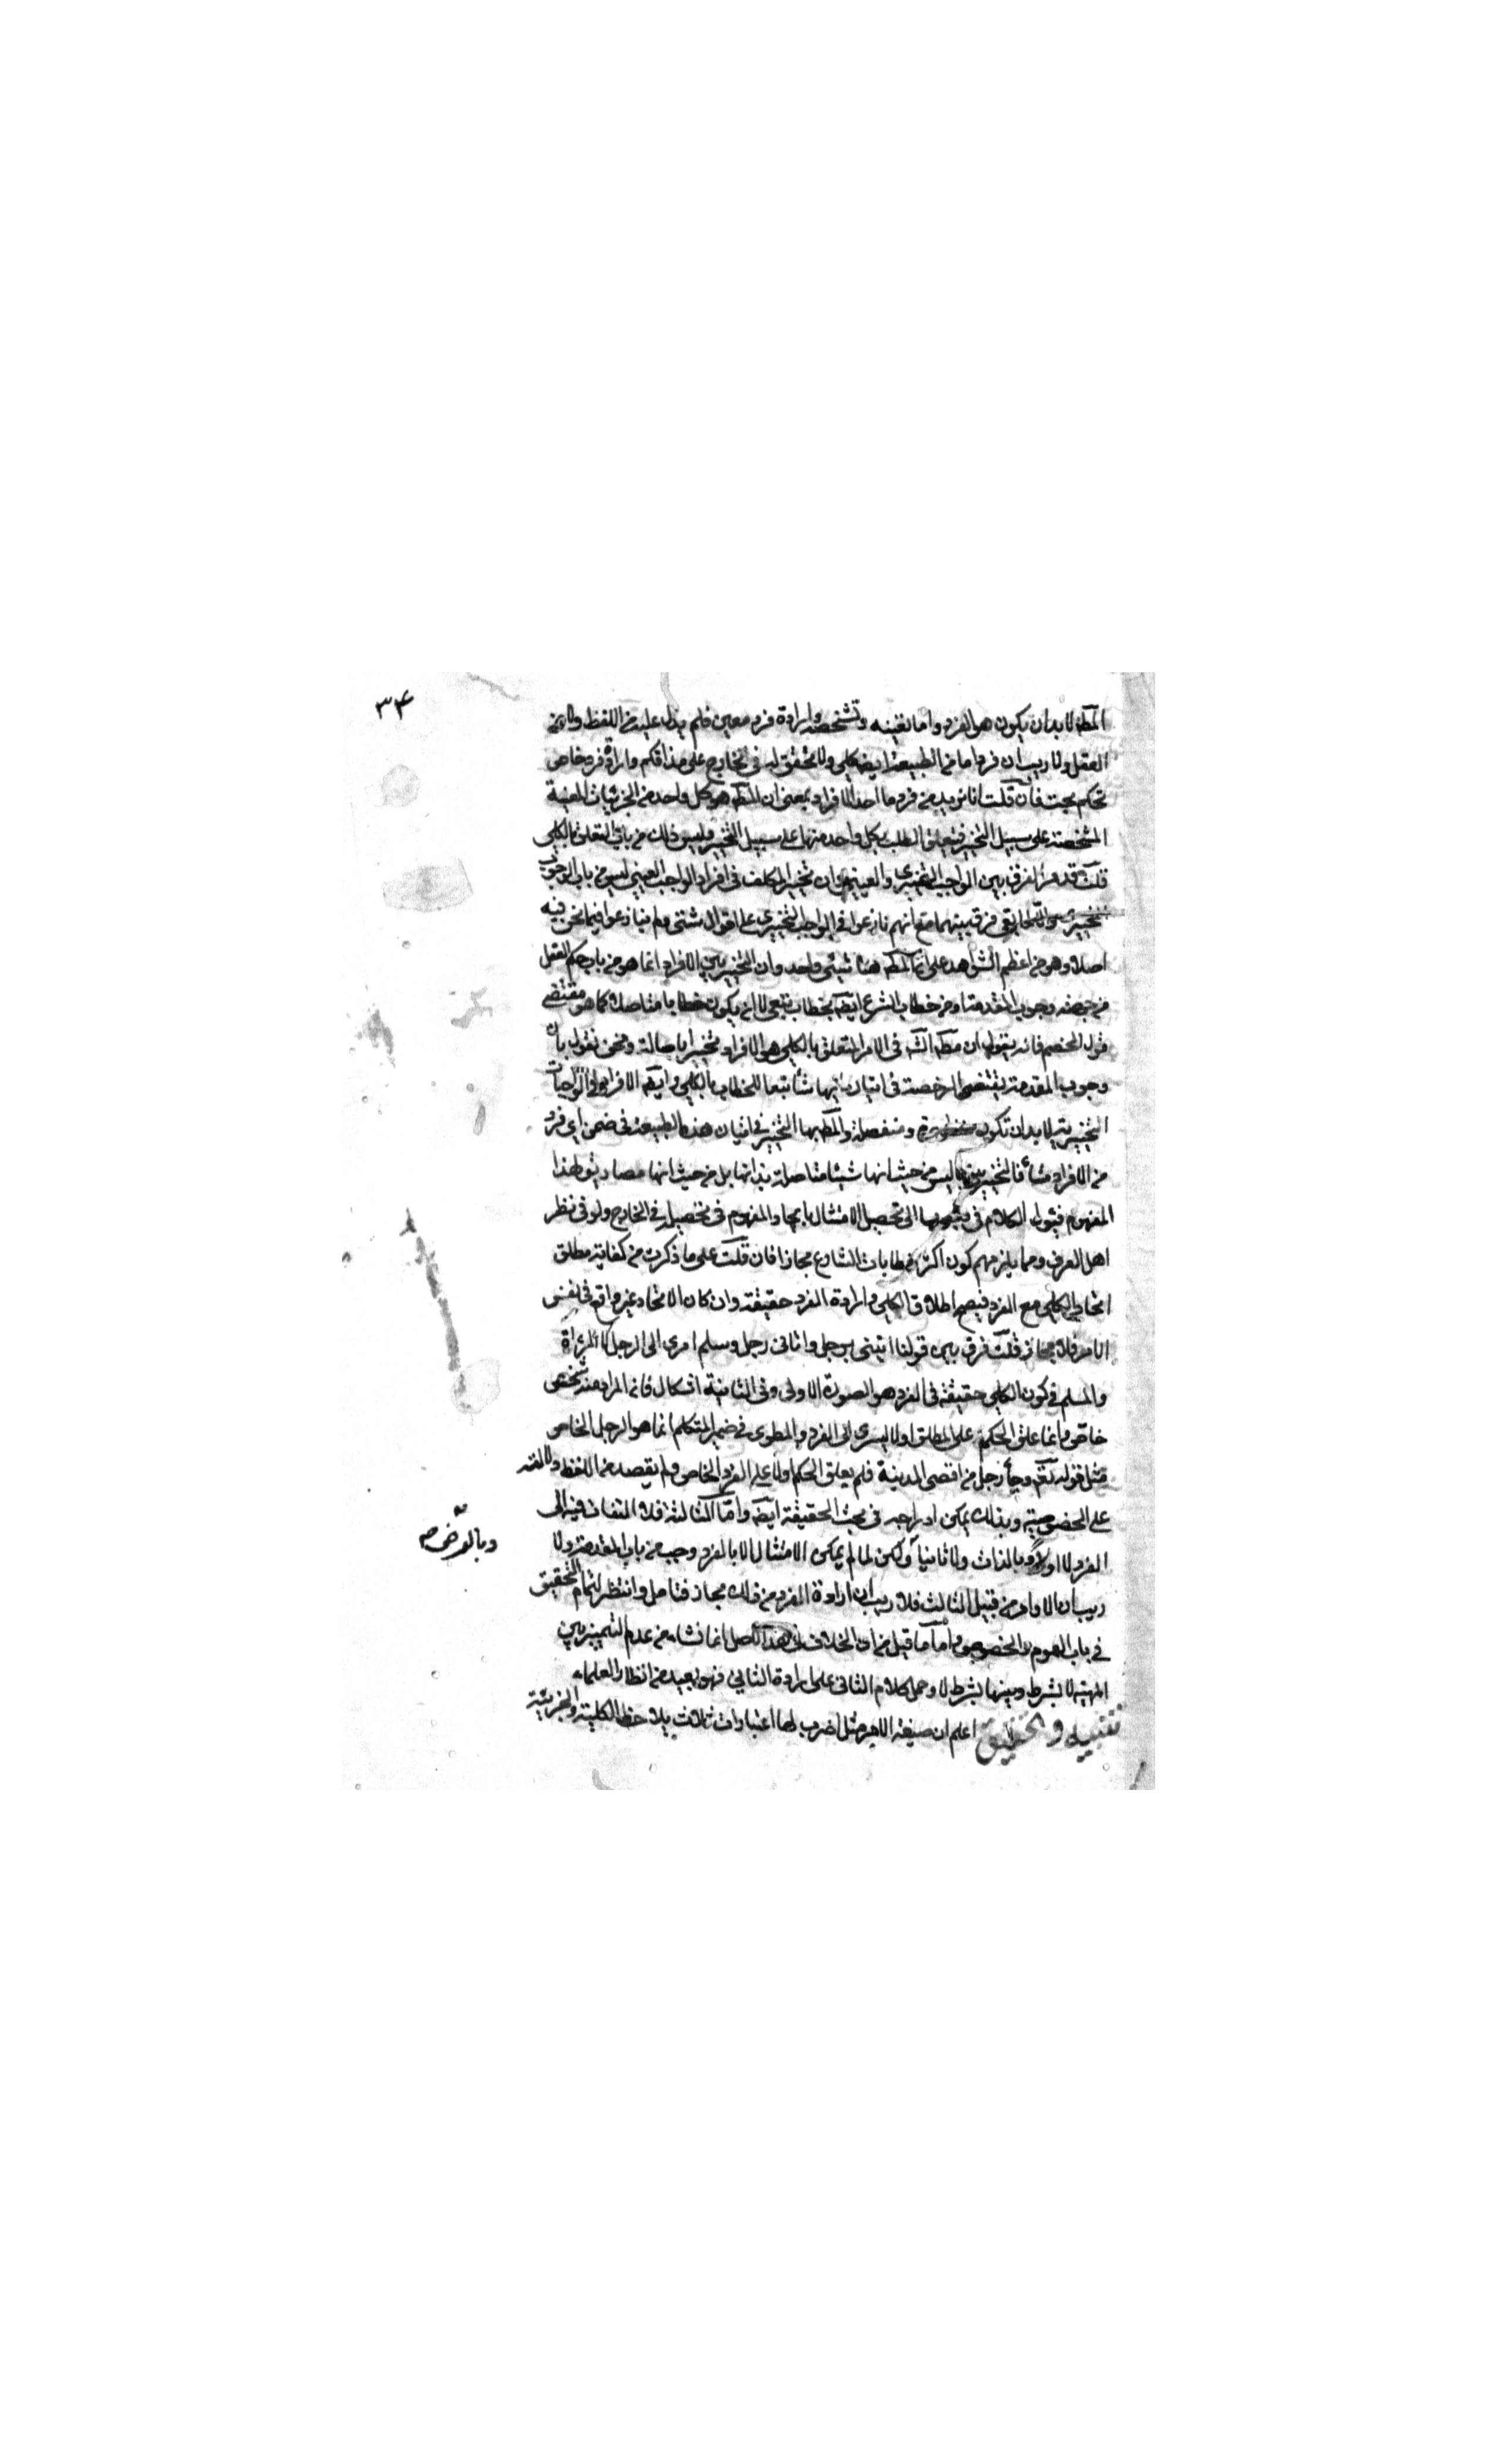 ٣۴
المط لا بد ان يكون هو الفرد واما تعيينه وتشخصه وارادة فرد معين فلم يدل عليه من اللفظ ولا من
العقل ولا ريب ان فردا ما من الطبيعة ايضا كلي ولا تحقق له في الخارج على مذاقكم وارادة فرد خاص
تحكم بحت فان قلت انا نريد من فرد ما احد الافراد بمعنى ان المط هو كل واحد من الجزئيات المعينة
المشخصة على سبيل التخيير فيتعلق الطلب بكل واحد منها على سبيل التخيير وليس ذلك من باب التعلق بالكلي
قلت قد مر الفرق بين الواجب التخييرى والعينى وان تخيير المكلف في افراد الواجب العيني ليس من باب الوجوب
التخييرى والا لما بقى فرق بينهما مع انهم نازعوا في الواجب التخييرى على اقوال شتى ولم يتنازعوا فيما نحن فيه
اصلا وهو من اعظم الشواهد على ان المط هنا شيئ واحد وان التخيير بين الافراد انما هو من باب حكم العقل
من جهة وجوب المقدمة او من خطاب الشرع ايضا بخطاب تبعي لا ان يكون خطابا متاصلا كما هو مقتضى
قول الخصم فانه يقول ان مط الش في الامر المتعلق بالكلي هو الافراد تخييرا باصالة ونحن نقول بان
وجوب المقدمة يقتضى الرخصة في اتيان ايها شأ تبعا للخطاب بالكلي وايضا الافراد في الواجبات
التخييرية لا بد ان تكون منظورة ومنفصلة والمط بها التخيير في اتيان هذه الطبيعة في ضمن اي فرد
من الافراد شأ فالتخيير بينها ليس من حيث انها شيئا متاصلة بذاتها بل من حيث انها مصاديق لهذا
المفهوم فيئول الكلام في الى تحصيل الامتثال بايجاد المفهوم في تحصيل في الخارج ولو في نظر
اهل العرف ومما يلزمهم كون اكثر خطابات الشارع مجازا فان قلت على ما ذكرت من كفاية مطلق
اتحاد الكلي مع الفرد فيصح اطلاق الكلي وارادة الفرد حقيقة وان كان الاتحاد غير واقع في نفس
الامر فلا مجاز قلت فرق بين قولنا ايتنى برجل واتانى رجل وسلم امرى الى الرجل لا المرأة
والمسلم في كون الكلي حقيقة في الفرد هو الصورة الاولى وفي الثانية اشكال فان المراد منه شخص
خاص وانما علق الحكم على المطلق اولا ليسرى الى الفرد والمطوى في ضمير المتكلم انما هو الرجل الخاص
مثل قوله تع وجأ رجل من اقصى المدينة فلم يعلق الحكم اولا على الفرد الخاص ولم يقصد من اللفظ دلالته
على الخصوصية وبذلك يمكن ادراجه في مبحث الحقيقة ايضا واما الثالثة فلا التفات فيه الى
الفرد لا اولا وبالذات ولا ثانيا ولكن لما لم يمكن الامتثال الا بالفرد وجب من باب المقدمة ولا
وبالعرض صح
ريب ان الاوامر من قبيل الثالث فلا ريب ان ارادة الفرد من ذلك مجاز فتامل وانتظر لتمام التحقيق
في باب العموم والخصوص واما ما قيل من ان الخلاف في هذا الاصل انما نشاء من عدم التمييز بين
المهية لا بشرط وبينها بشرط لا وحمل كلام الثانى على ارادة الثانى فهو بعيد من انظار العلماء
تنبيه وتحقيق اعلم ان صيغة الامر مثل اضرب لها اعتبارات ثلاث يلاحظ الكلية والجزئية